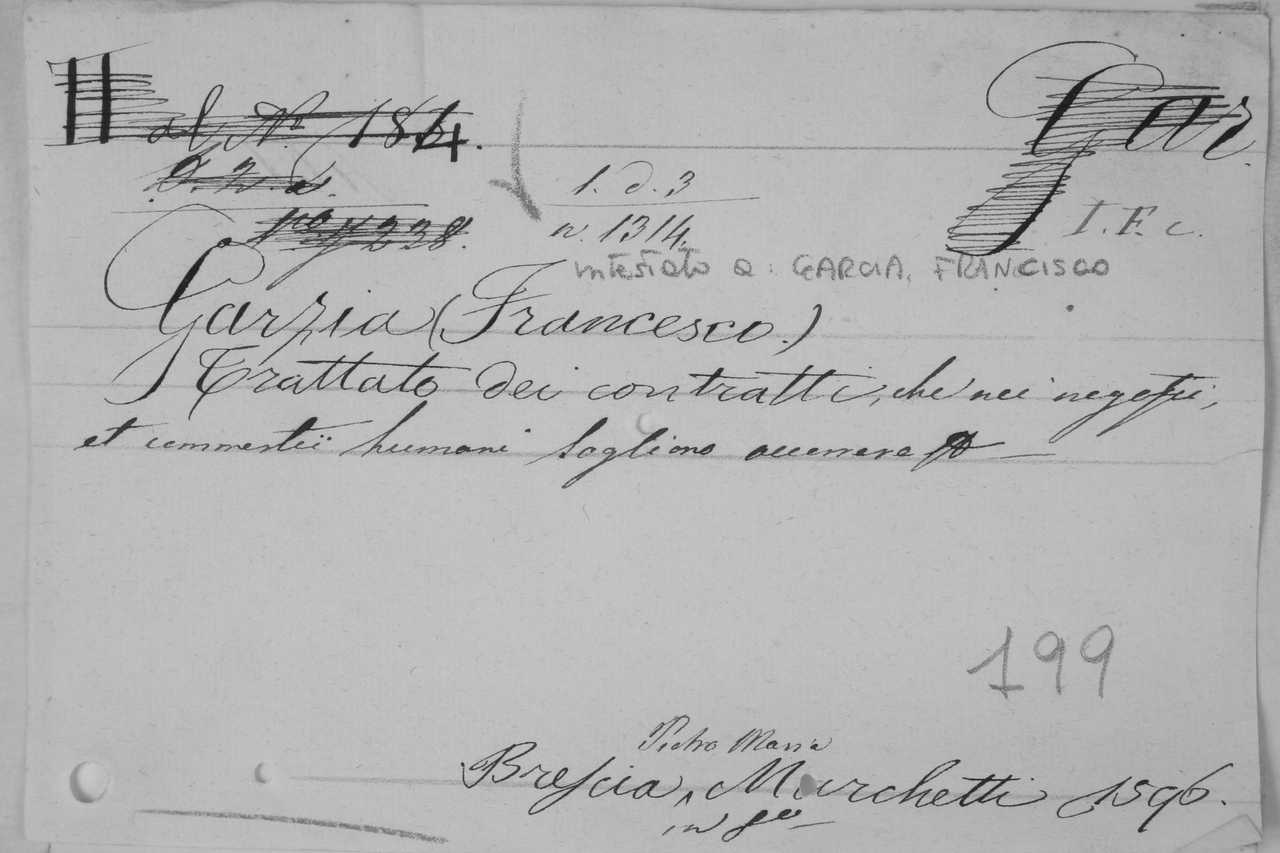 al N.º 184.
Gar
1. d. 3
n. 1314.
I. F. c.
intestato a: GARCIA, FRANCISCO
Garzia (Francesco.)
Trattato dei contratti, che nei negotii,
et commertii humani sogliono occorrere
199
Pietro Maria
Brescia, Marchetti 1596.
in 8º